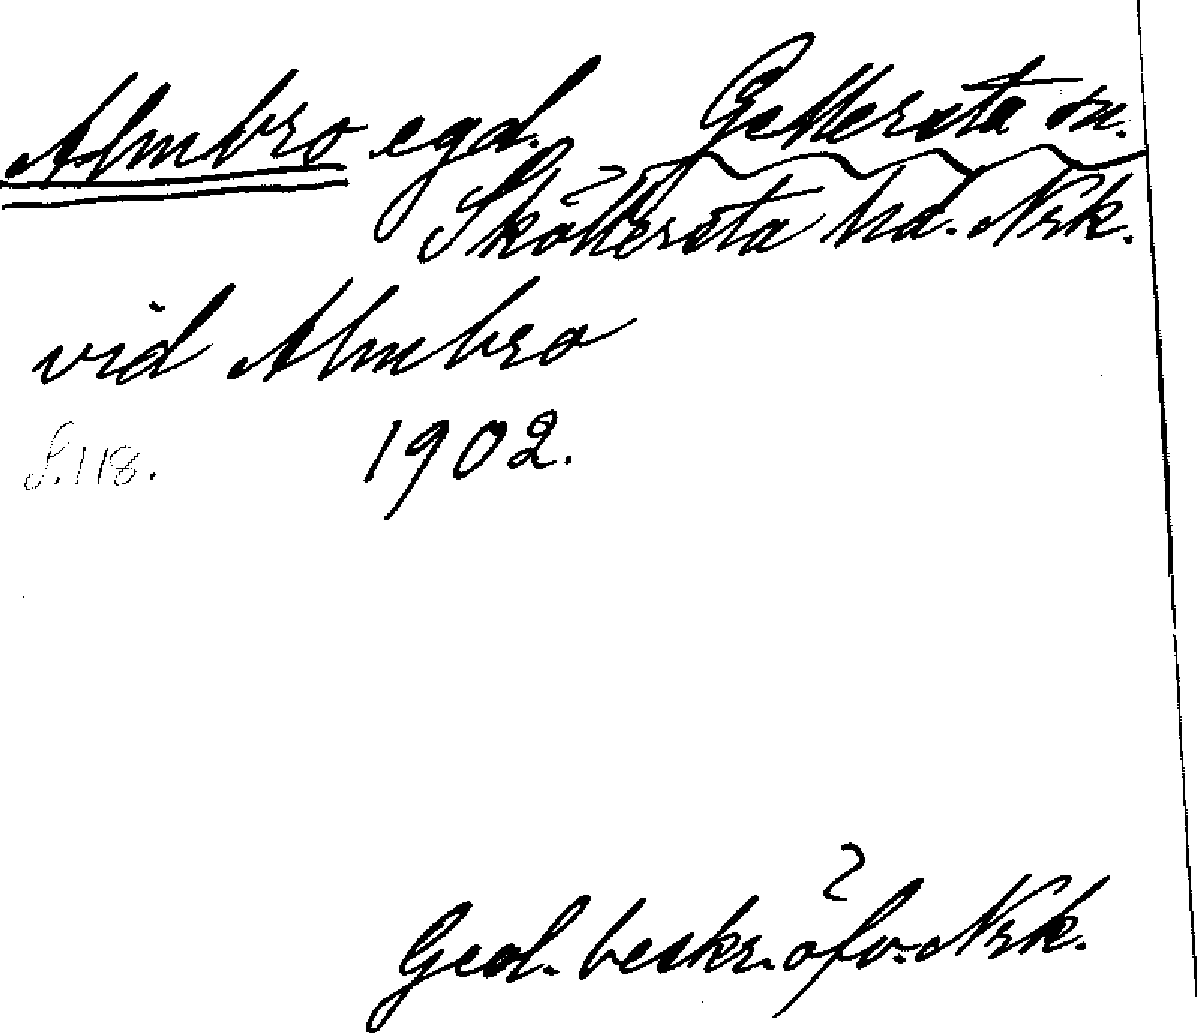 Almbro egd. Gällersta sn.
Sköllersta hd. Nrk.
vid Almbro
S. 118. 1902.
Geol. beskr. öfv. Nrk.